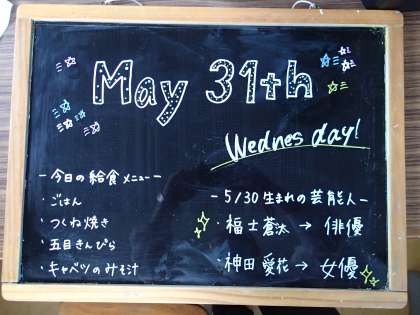 May 31th
Wednesday!
- 今日の給食メニュー -
・ごはん
・つくね焼き
・五目きんぴら
・キャベツのみそ汁
- 5/30生まれの芸能人 -
・福士蒼汰 → 俳優
・神田愛花 → 女優